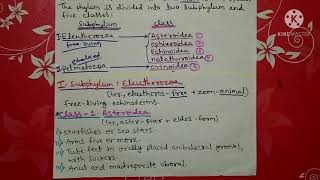 The phylum is divided into two subphylum and
five classes:
Subphylum class
I-Eleutherozoa Asteroidea ①
free living ophiuroidea ②
Echinoidea ③
Stalked holothuroidea ④
II-Pelmatozoa Crinoidea ⑤
I- Subphylum: Eleutherozoa
(Ler, eleutheris-free + zoon-animal)
free-living echinoderms.
Class-1- Asteroidea
(Ler, aster-star + eidos-form)
i) starfishes or sea stars.
ii) Arms five or more.
iii) Tube feet in orally placed ambulacral grooves,
with suckers.
iv) Anus and madreporite aboral.
KINEMASTER